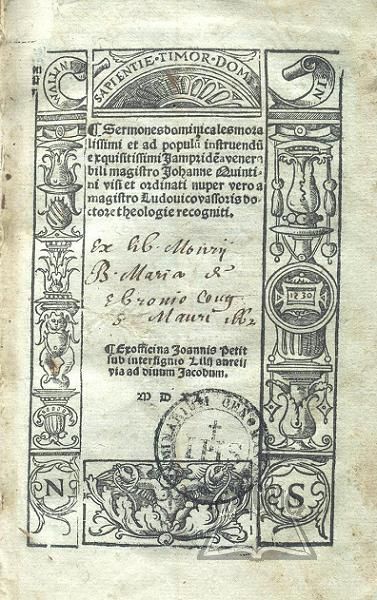 SAPIENTIE·TIMOR·DOMI
IN
¶ Sermones dominicales mora
lissimi et ad populū instruendū
exquisitissimi Jampridē a vener
bili magistro Johanne Quinti
ni visi et ordinati nuper vero a
magistro Ludovico vassoris do
ctore theologie recogniti.
Ex lib. Mon.rij
B. Maria de
Ebronio Cong
S Mauri
1530
¶ Ex officina Joannis Petit
sub intersignio Lilij aurei,
via ad divum Jacobum.
IHS
N
S